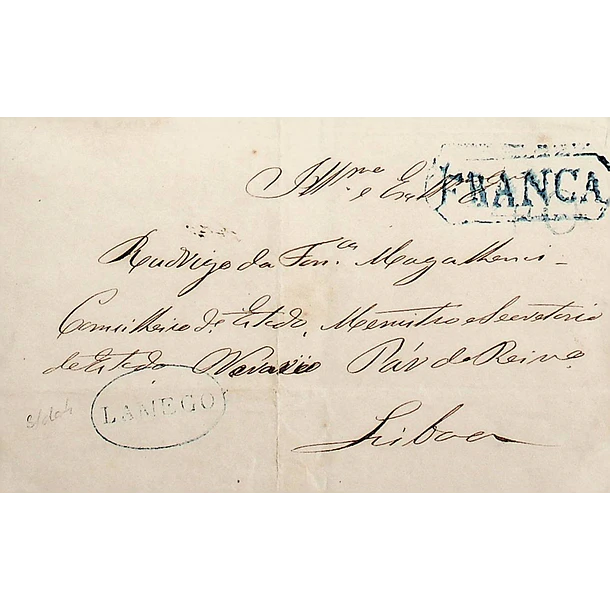 Illmo e Exmo Sr
FRANCA
Rodrigo da Fonca Magalhens
Conselheiro de Estado, Menistro e Secretario
de Estado Par do Reino
LAMEGO
Lisboa